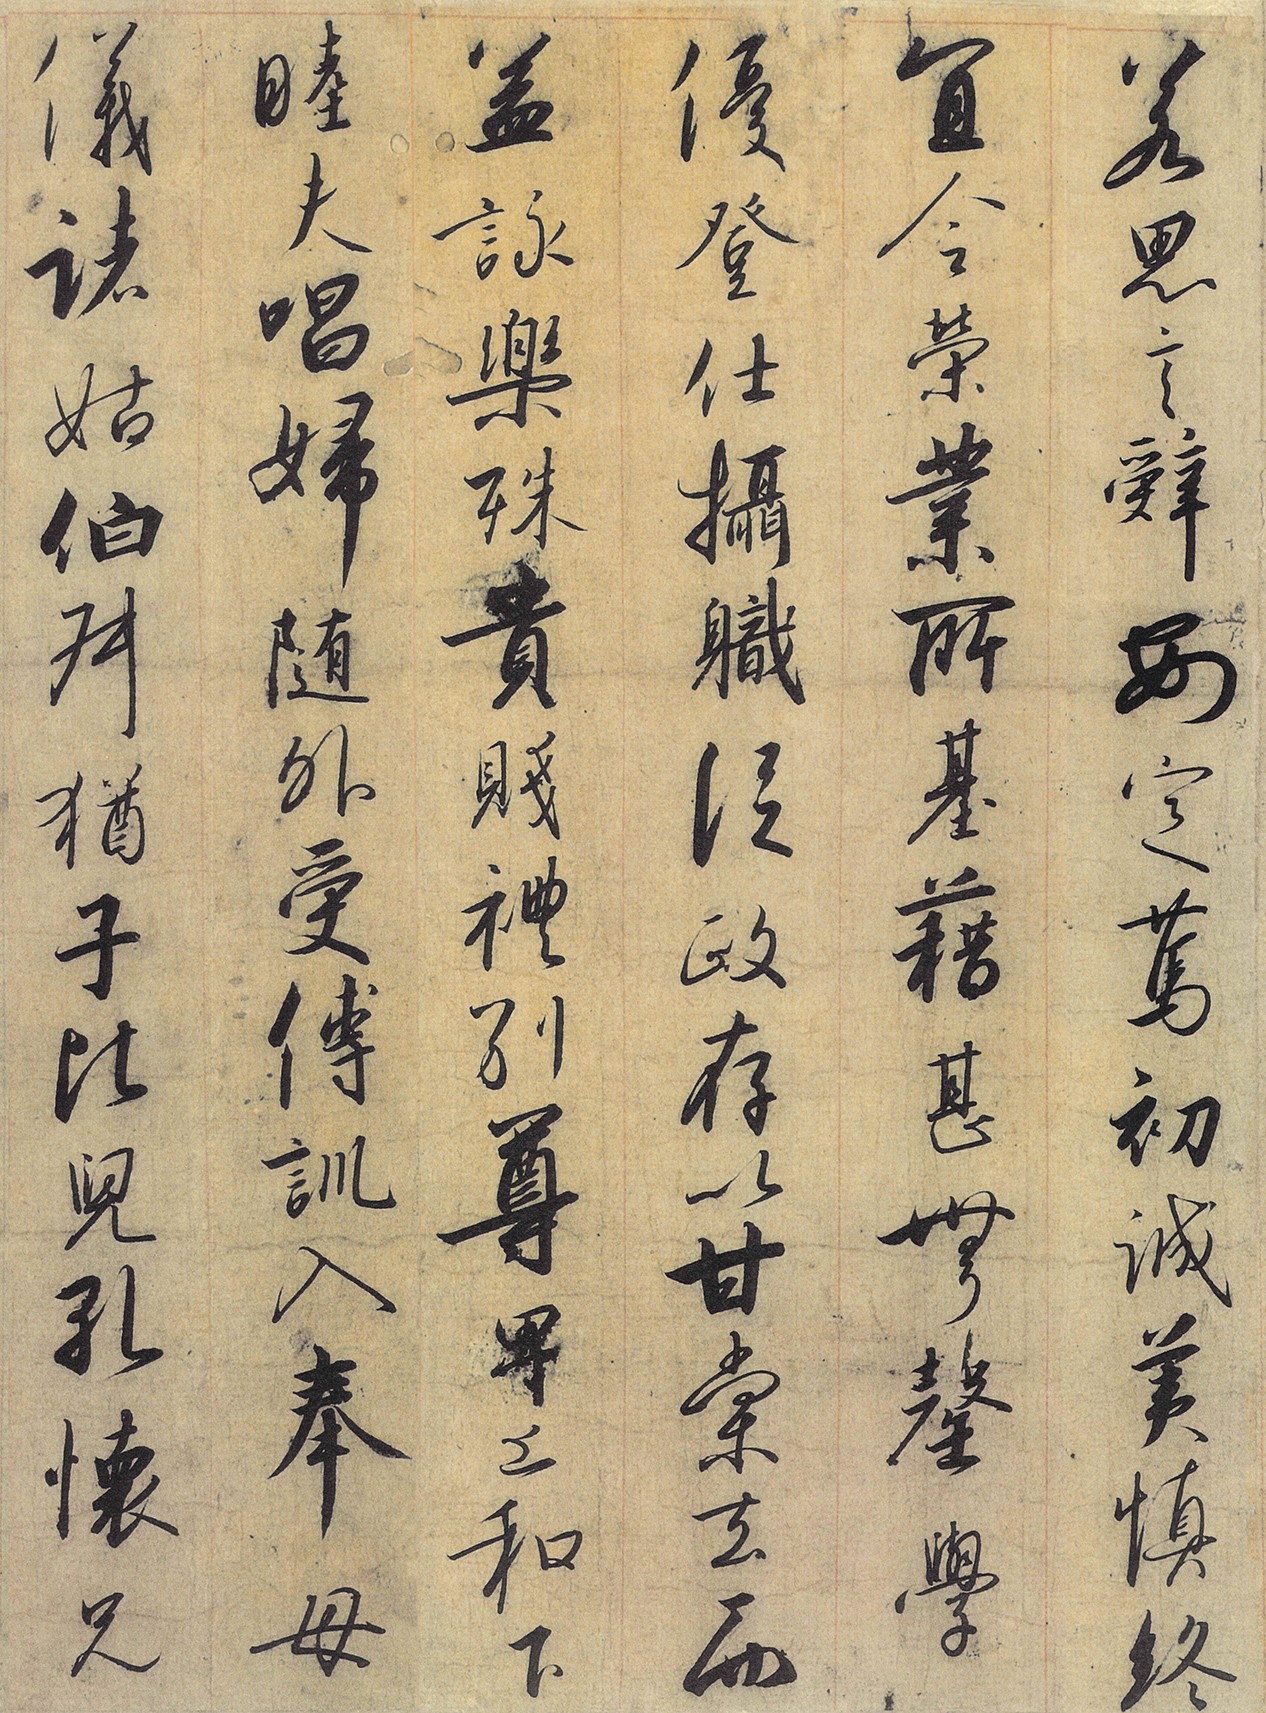 若思言辭安定篤初誠美慎終
宜令榮業所基藉甚無竟學
優登仕攝職從政存以甘棠去而
益詠樂殊貴賤禮別尊卑上和下
睦夫唱婦隨外受傅訓入奉母
儀諸姑伯叔猶子比兒孔懷兄